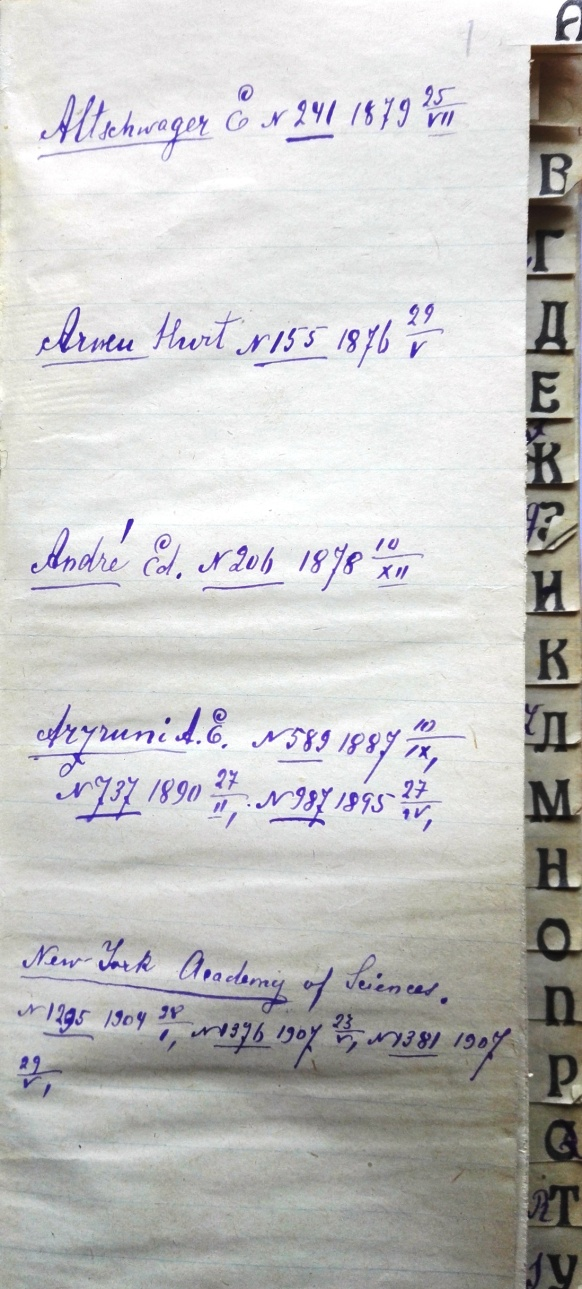 1
Altschwager E N 241 1879 25/VII
Armeu Hurt N 155 1876 29/V
André Ed. N 206 1878 10/XII
Arzruni A. E. N 589 1887 10/IX,
N 737 1890 27/II, N 987 1895 27/IV,
New-York Academy of Sciences.
N 1295 1904 28/I, N 1376 1907 23/V, N 1381 1907
29/V,
А
В
Г
Д
Е
Ж
И
К
Л
М
Н
О
П
Р
С
Т
У